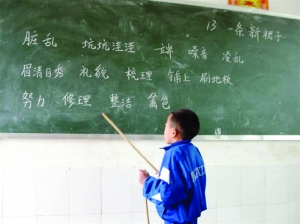 13 一条新裙子
脏乱 坑坑洼洼 一端 噪音 凌乱
眉清目秀 礼貌 梳理 铺上 刷地板
努力 修理 整洁 蓝色